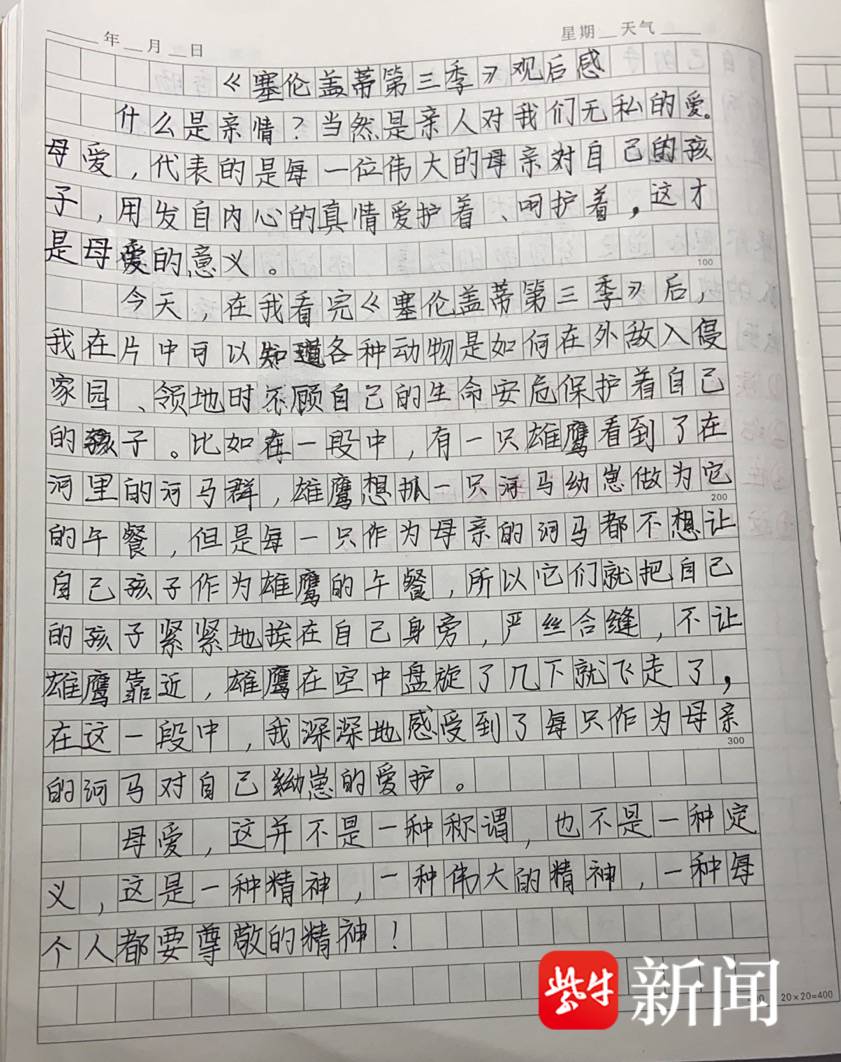 年 月 日 星期 天气
《塞伦盖蒂第三季》观后感
什么是亲情?当然是亲人对我们无私的爱。
母爱,代表的是每一位伟大的母亲对自己的孩
子,用发自内心的真情爱护着、呵护着,这才
是母爱的意义。
100
今天,在我看完《塞伦盖蒂第三季》后,
我在片中可以知道各种动物是如何在外敌入侵
家园、领地时不顾自己的生命安危保护着自己
的孩子。比如在一段中,有一只雄鹰看到了在
河里的河马群,雄鹰想抓一只河马幼崽做为它
200
的午餐,但是每一只作为母亲的河马都不想让
自己孩子作为雄鹰的午餐,所以它们就把自己
的孩子紧紧地挨在自己身旁,严丝合缝,不让
雄鹰靠近,雄鹰在空中盘旋了几下就飞走了,
在这一段中,我深深地感受到了每只作为母亲
300
的河马对自己幼崽的爱护。
母爱,这并不是一种称谓,也不是一种定
义,这是一种精神,一种伟大的精神,一种每
个人都要尊敬的精神!
紫牛新闻
20×20=400